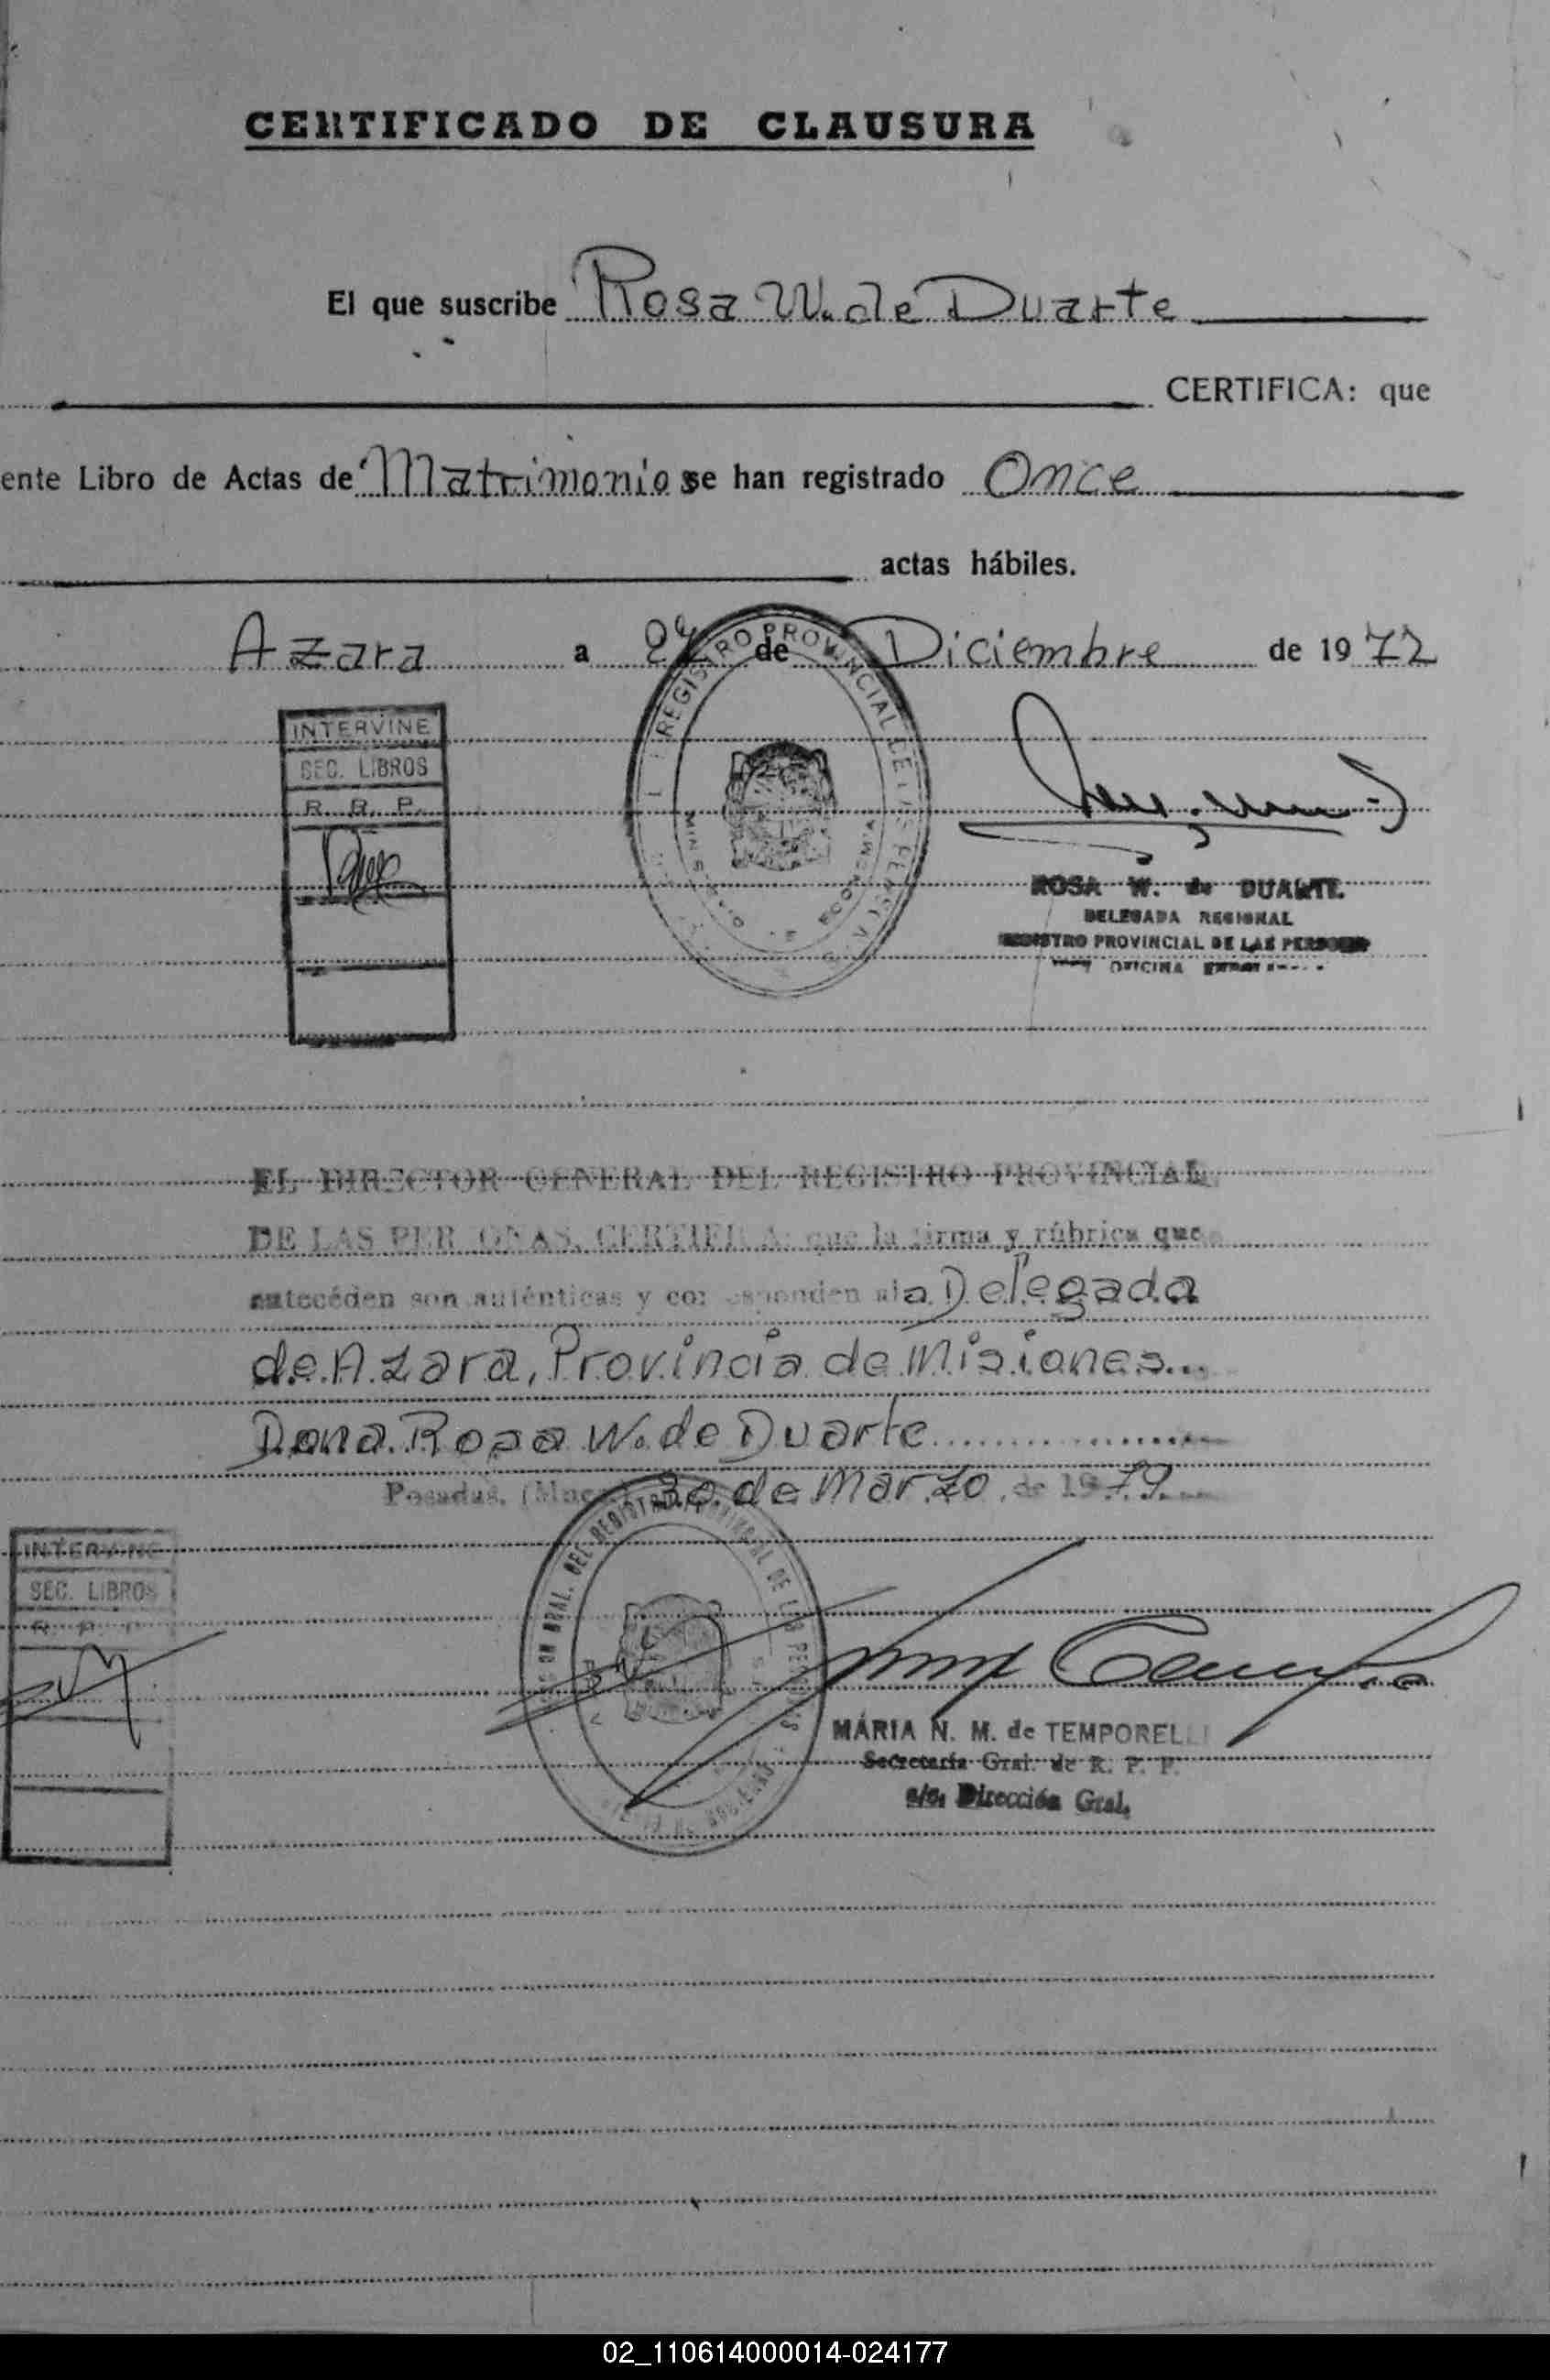 CERTIFICADO DE CLAUSURA
El que suscribe Rosa W. de Duarte
CERTIFICA: que
ente Libro de Actas de Matrimonios se han registrado Once
actas hábiles.
Azara a de Diciembre de 1972
INTERVINE
SEC. LIBROS
R. R. P.
REGISTRO PROVINCIAL DE LAS PERSONAS
ROSA W. de DUARTE
DELEGADA REGIONAL
REGISTRO PROVINCIAL DE LAS PERSONAS
OFICINA
EL DIRECTOR GENERAL DEL REGISTRO PROVINCIAL
DE LAS PERSONAS, CERTIFICA: que la firma y rúbrica que
anteceden son auténticas y corresponden a la Delegada
de Azara, Provincia de Misiones...
Dona Rosa W. de Duarte
Posadas, 30 de Marzo de 1979
INTERVINE
SEC. LIBROS
DEL REGISTRO PROVINCIAL DE LAS PERSONAS
MARIA N. M. de TEMPORELLI
Secretaria Gral. de R. P. P.
a/c. Dirección Gral.
02_110614000014-024177